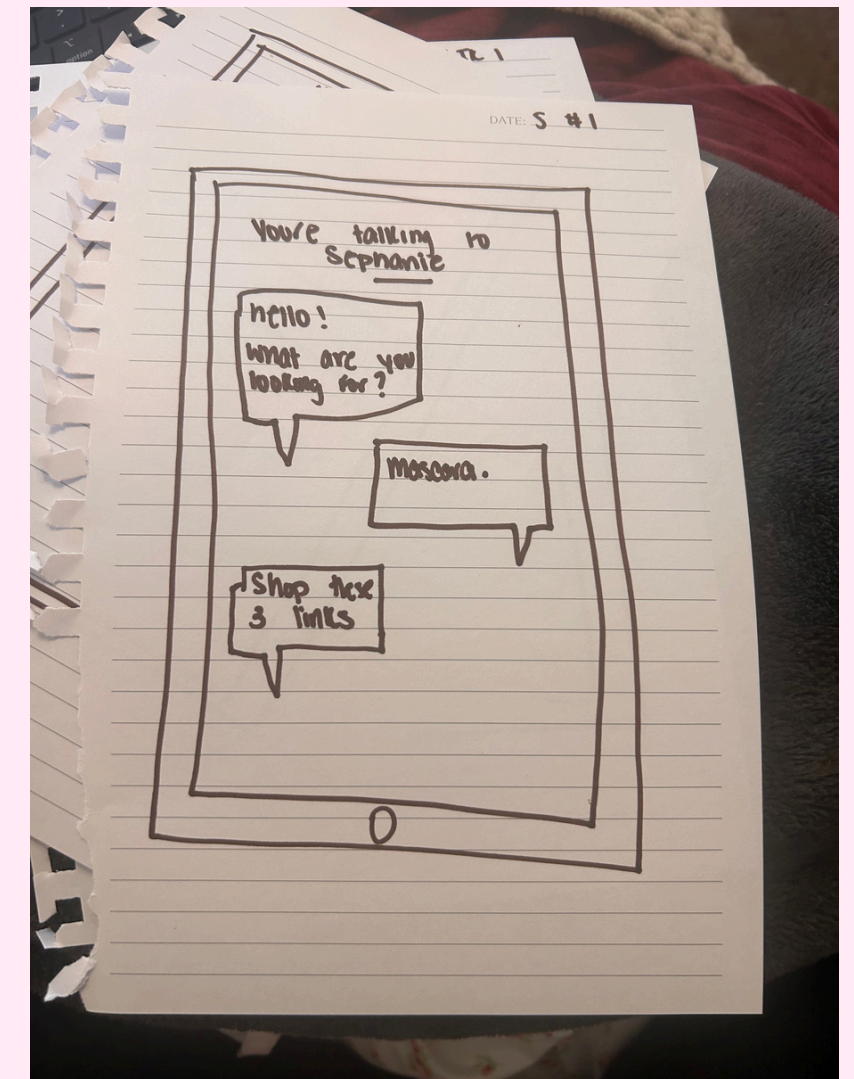 option
TR 1
DATE: S #1
Youre talking to
Sephanie
hello!
What are you
looking for?
mascara.
Shop these
3 links